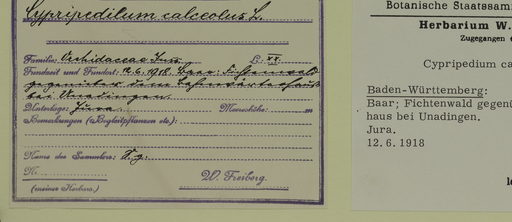 Cypripedilum calceolus L.
Familie: Orchidaceae Juss. B. XX.
Fundzeit und Fundort: 12.6.1918. Baar: Fichtenwald
gegenüber dem Bahnwärterhaus
bei Unadingen.
Unterlage: Jura. Meereshöhe: m
Bemerkungen (Begleitpflanzen etc.):
Name des Sammlers:
N.
(meiner Herbars.) W. Freiberg.
Botanische Staatssam
Herbarium W.
Zugegangen
Cypripedium ca
Baden-Württemberg:
Baar; Fichtenwald gegenü
haus bei Unadingen.
Jura.
12.6.1918